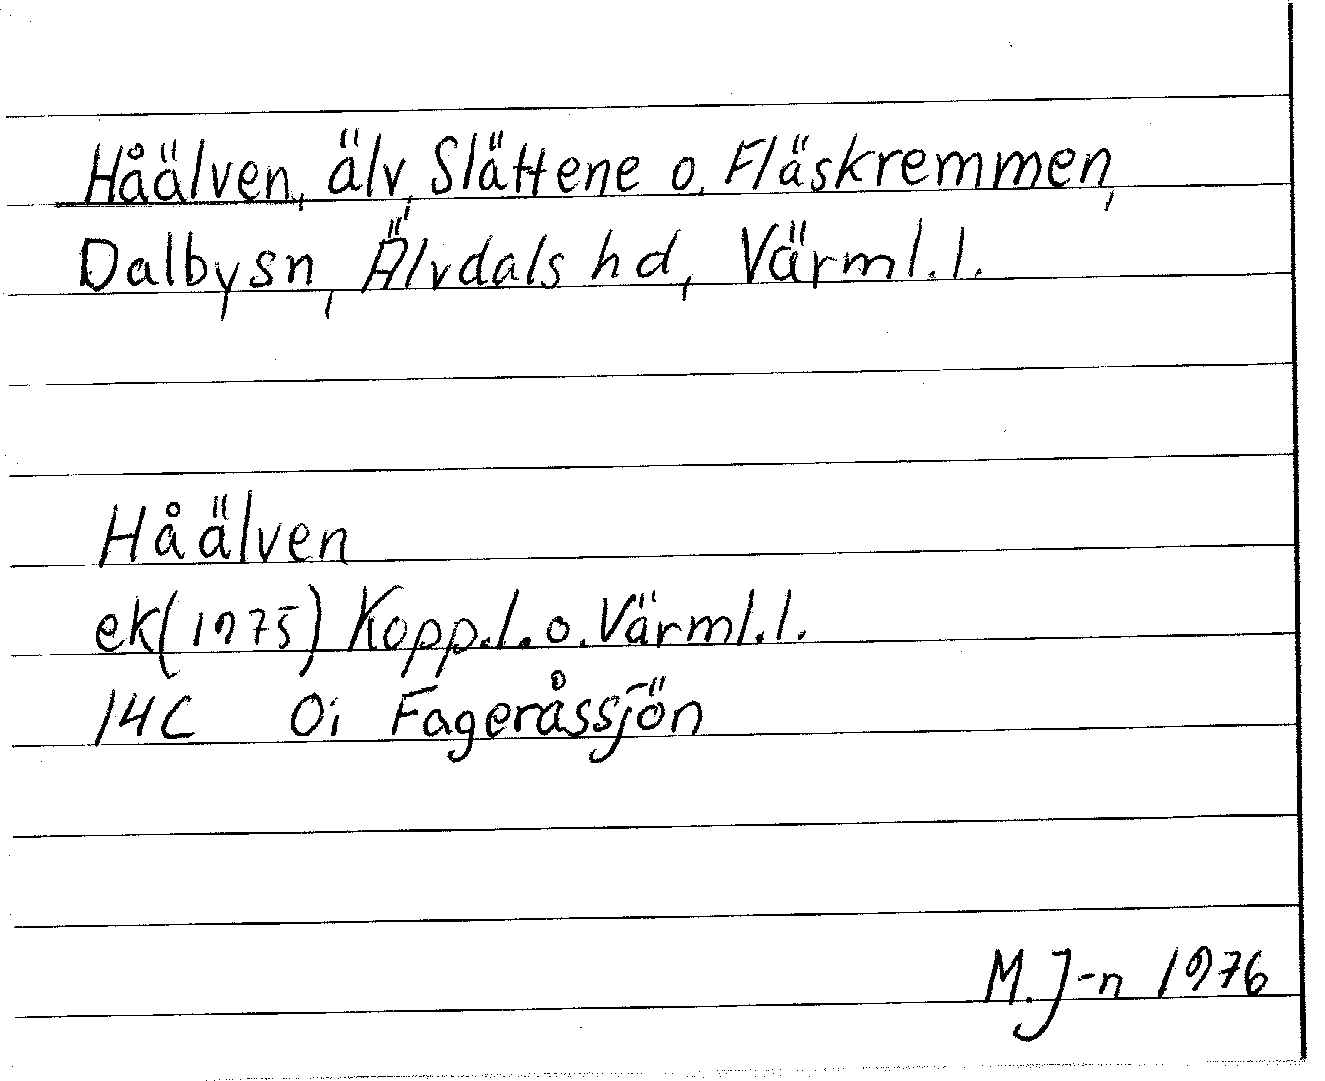 Håälven, älv, Slättene o. Fläskremmen,
Dalbysn, Älvdals hd, Värml.l.
Håälven
ek(1975) Kopp.l.o.Värml.l.
14C 0i Fageråssjön
M.J-n 1976